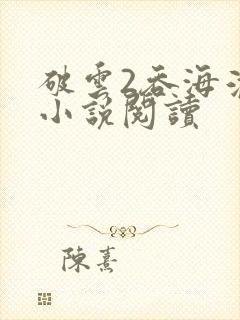 破雲2吞海
小說閱讀
陳熹